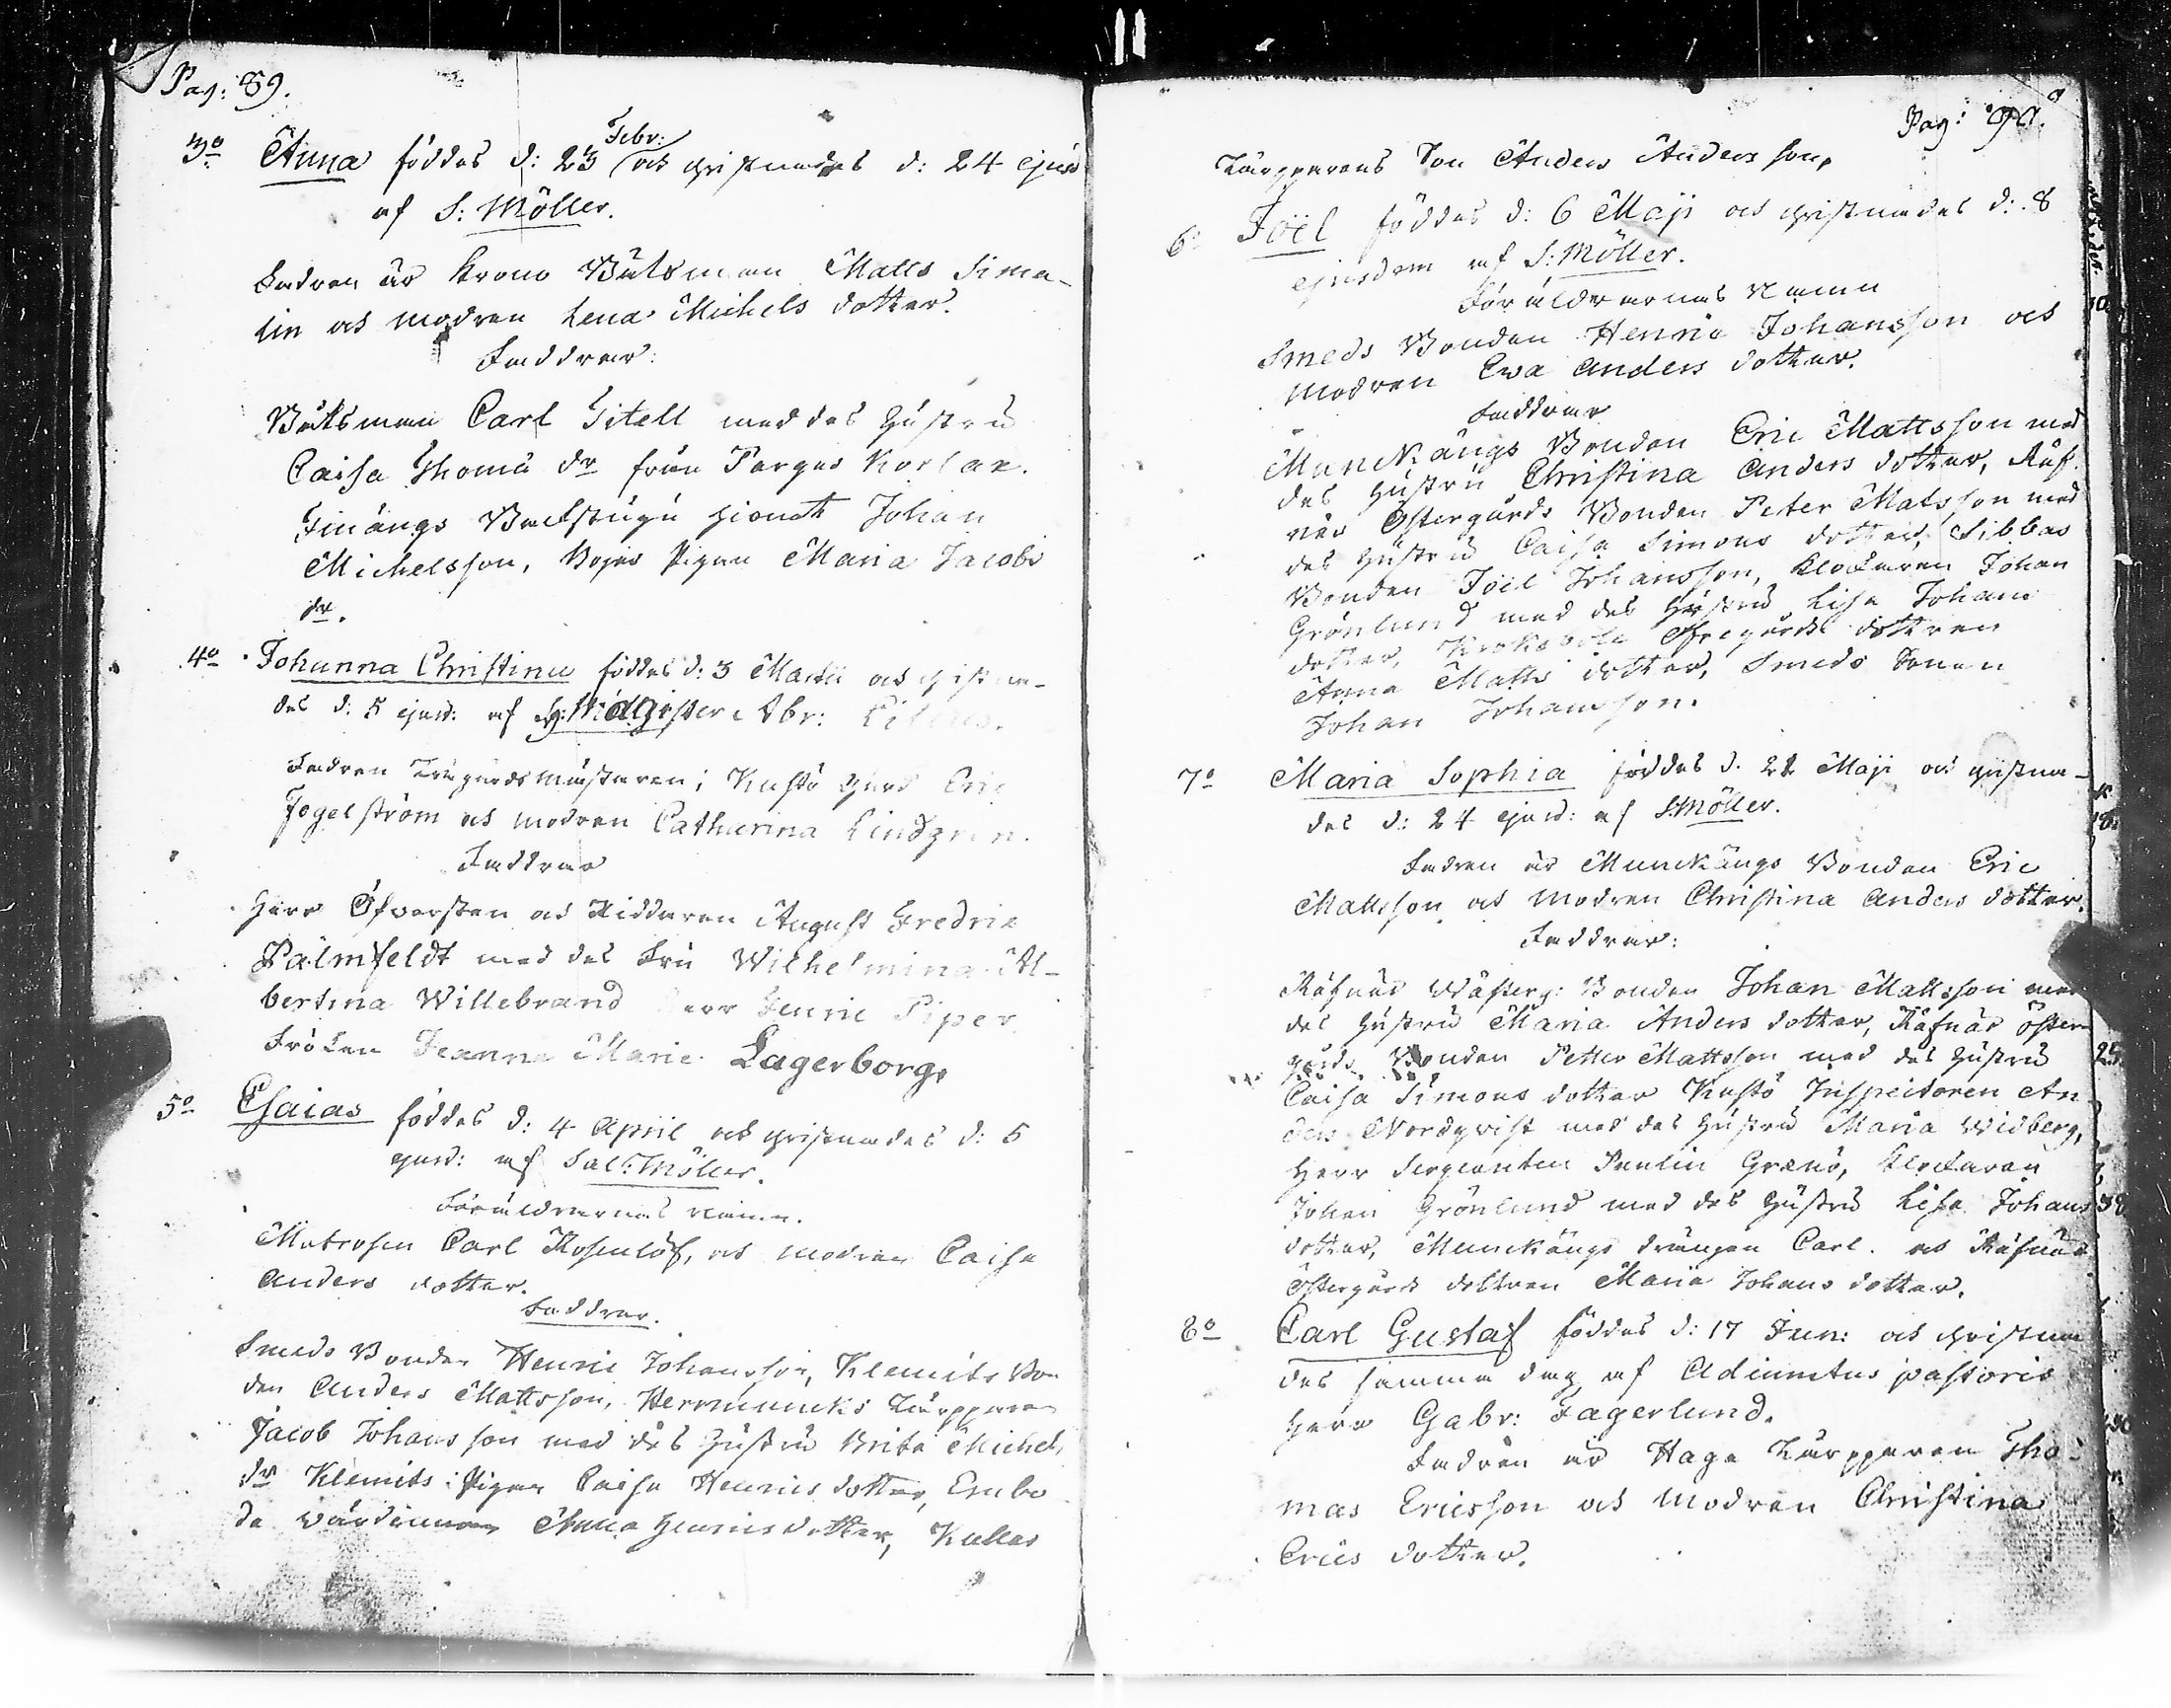 Pag: 89.
3o Anna föddes d: 23 Febr: och christnades d: 24 ejusd
af S: Möller.
Fadren är Krono Båtsman Matts Sima-
lin och modren Lena Michels dotter.
Faddrar:
Båtsman Carl Sitell med des hustru
Caisa Thomæ dr från Pargas Kyrlax.
Finängs Backstugu hionet Johan
Michelsson, Bojas Pigan Maria Jacobs
dr.
4o Johanna Christina föddes d: 3 Martii och christna-
des d: 5 ejusd: af H: Magister Abr:
Fadren Trägårds mästaren i Kustö gård Eric
Fogelström och modren Catharina Lindgren.
Faddrar
Herr Öfversten och Riddaren August Fredric
Palmfeldt med des Fru Wilhelmina Al-
bertina Willebrand Herr Henric Piper
Fröken Jeanne Marie Lagerborg.
5o Esaias föddes d: 4 April och christnades d: 5
ejusd: af Sal: Möller.
Föräldrarnas namn.
Matrosen Carl Rosenlöf, och modren Caisa
Anders dotter.
Faddrar.
Smeds Bonden Henric Johansson, Klemets Bon
den Anders Mattsson, Hermuncks Torpparen
Jacob Johansson med des hustru Brita Michels
dr Klemets Pigan Caisa Henrics dotter, Embo
da värdinnan Anna Henricsdotter, Kullas
Pag: 90.
Torpparens Son Anders Andersson,
6o Joël föddes d: 6 Maji och christnades d: 8
ejusdem af S: Möller.
Föräldrarnas namn
Smeds Bonden Henric Johansson och
modren Eva Anders dotter.
Faddrar
Munckängs Bonden Eric Mattsson med
des hustru Christina Anders dotter, Räf-
näs Östergårds Bonden Peter Matsson med
des hustru Caisa Simons dotter, Sibbas
Bonden Joël Johansson, Klockaren Johan
Grönlund med des hustru Lisa Johans
dotter, Kroksböle Öfregårds dottren
Anna Matts dotter, Smeds Sonen
Johan Johansson.
7o Maria Sophia föddes d. 22 Maji och christna-
des d: 24 ejusd: af S: Möller.
Fadren är Munckängs Bonden Eric
Mattsson och modren Christina Anders dotter.
Faddrar:
Räfnäs Wästerg: Bonden Johan Mattsson med
des hustru Maria Anders dotter, Räfnäs Öster
gårds Bonden Petter Mattsson med des hustru
Caisa Simons dotter Kustö Inspectoren An-
ders Nordqvist med des hustru Maria Widberg,
Herr Sergeanten Paulin Grænö, Klockaren
Johan Grönlund med des hustru Lisa Johans
dotter, Munckängs drängen Carl. och Räfnäs
Östergårds dottren Maria Johans dotter.
8o Carl Gustaf föddes d: 17 Jun: och christna
des samma dag af Adiunctus pastoris
Herr Gabr: Fagerlund.
Fadren är Haga Torpparen Tho-
mas Ericsson och modren Christina
Erics dotter.